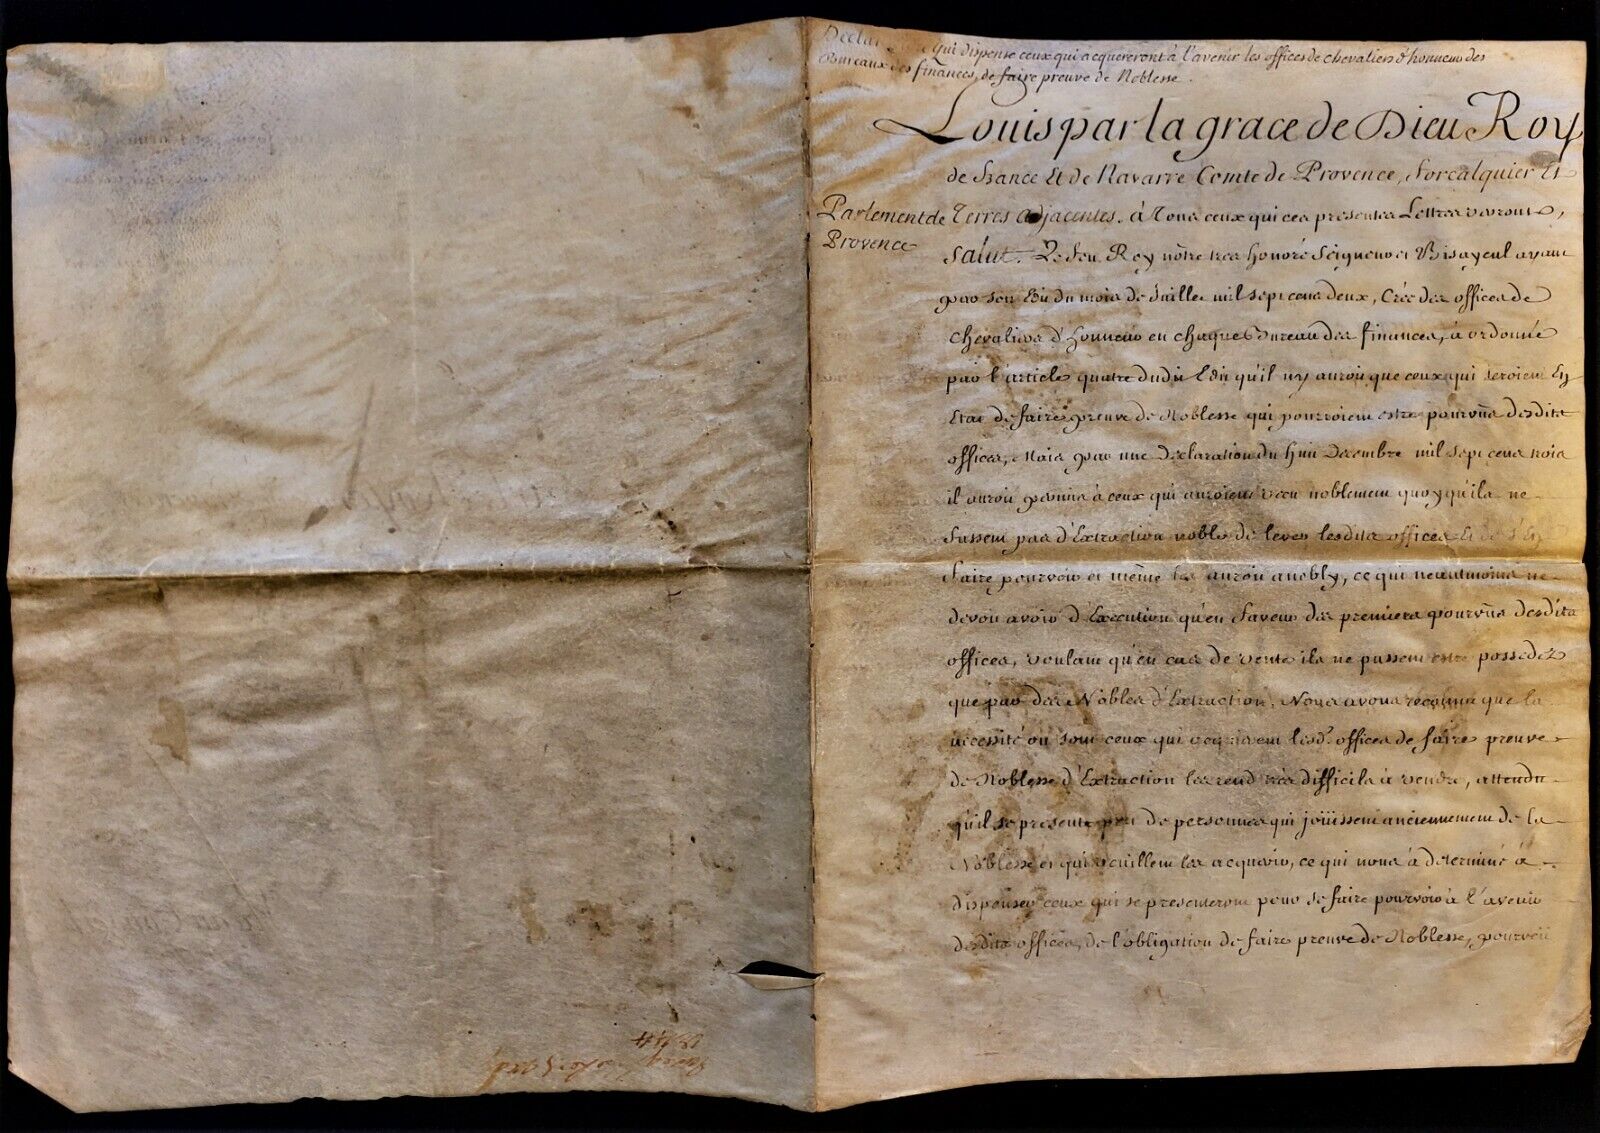 Declar qui dispense ceux qui acquereront à l'avenir les offices de chevaliers d'honneur des
Bureaux des finances, de faire preuve de Noblesse.
Louis par la grace de Dieu Roy
de France Et de Navarre Comte de Provence, Forcalquier Et
Parlement de Provence
Terres adjacentes. à Tous ceux qui ces presentes Lettres verront,
Salut. Le feu Roy nôtre tres honoré Seigneur et Bisayeul ayant
par son Edit du mois de Juillet mil sept cens deux, Créé des offices de
Chevaliers d'Honneur en chaque Bureau des finances, à ordonné
par l'article quatre dudit Edit qu'il n'y auroit que ceux qui seroient En
Etat de faire preuve de Noblesse qui pourroient estre pourvûs desdits
offices, Mais par une Declaration du huit Decembre mil sept cens trois
il auroit permis à ceux qui auroient vecu noblement quoyqu'ils ne
fussent pas d'Extraction noble de lever lesdits offices Et de s'En
faire pourvoir et même les auroit anobly, ce qui neantmoins ne
devoit avoir d'Execution qu'en faveur des premiers pourvûs desdits
offices, voulant qu'en cas de vente ils ne pussent estre possedez
que par des Nobles d'Extraction. Nous avons reconnu que la
necessité où sont ceux qui acquierent lesd. offices de faire preuve
de Noblesse d'Extraction les rend tres difficils à vendre, attendu
qu'il se presente peu de personnes qui joüissent anciennement de la
Noblesse et qui veuillent les acquerir, ce qui nous à determiné à
dispenser ceux qui se presenteront pour se faire pourvoir à l'avenir
desdits offices, de l'obligation de faire preuve de Noblesse, pourveu